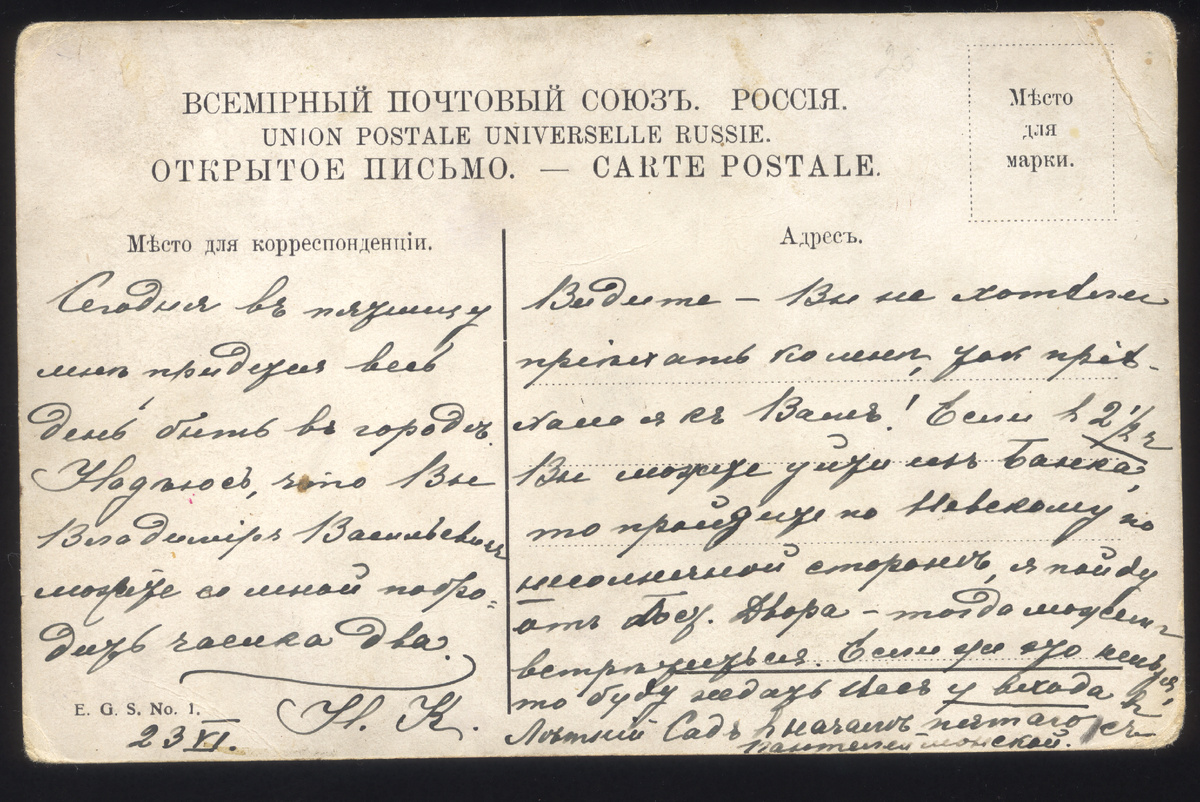 ВСЕМІРНЫЙ ПОЧТОВЫЙ СОЮЗЪ. РОССІЯ.
UNION POSTALE UNIVERSELLE RUSSIE.
ОТКРЫТОЕ ПИСЬМО. — CARTE POSTALE.
Мѣсто
для
марки.
Мѣсто для корреспонденціи.
Сегодня въ пятницу
мнѣ придется весь
день быть въ городѣ.
Надѣюсь, что Вы
Владиміръ Васильевичъ
можете со мной побро-
дить часика два.
Н. К.
E. G. S. No. 1.
23 VI.
Адресъ.
Видите – Вы не хотѣли
пріѣхать ко мнѣ, такъ пріѣ-
хала я къ Вамъ! Если въ 2 1/2 ч
Вы можете уйти изъ Банка,
то пройдите по Невскому по
несолнечной сторонѣ, я пойду
отъ Гост. Двора – тогда можемъ
встрѣтиться. Если же это нельзя,
то буду ждать Васъ у входа въ
Лѣтній Садъ въ началѣ пятаго къ
Пантелеймонской.